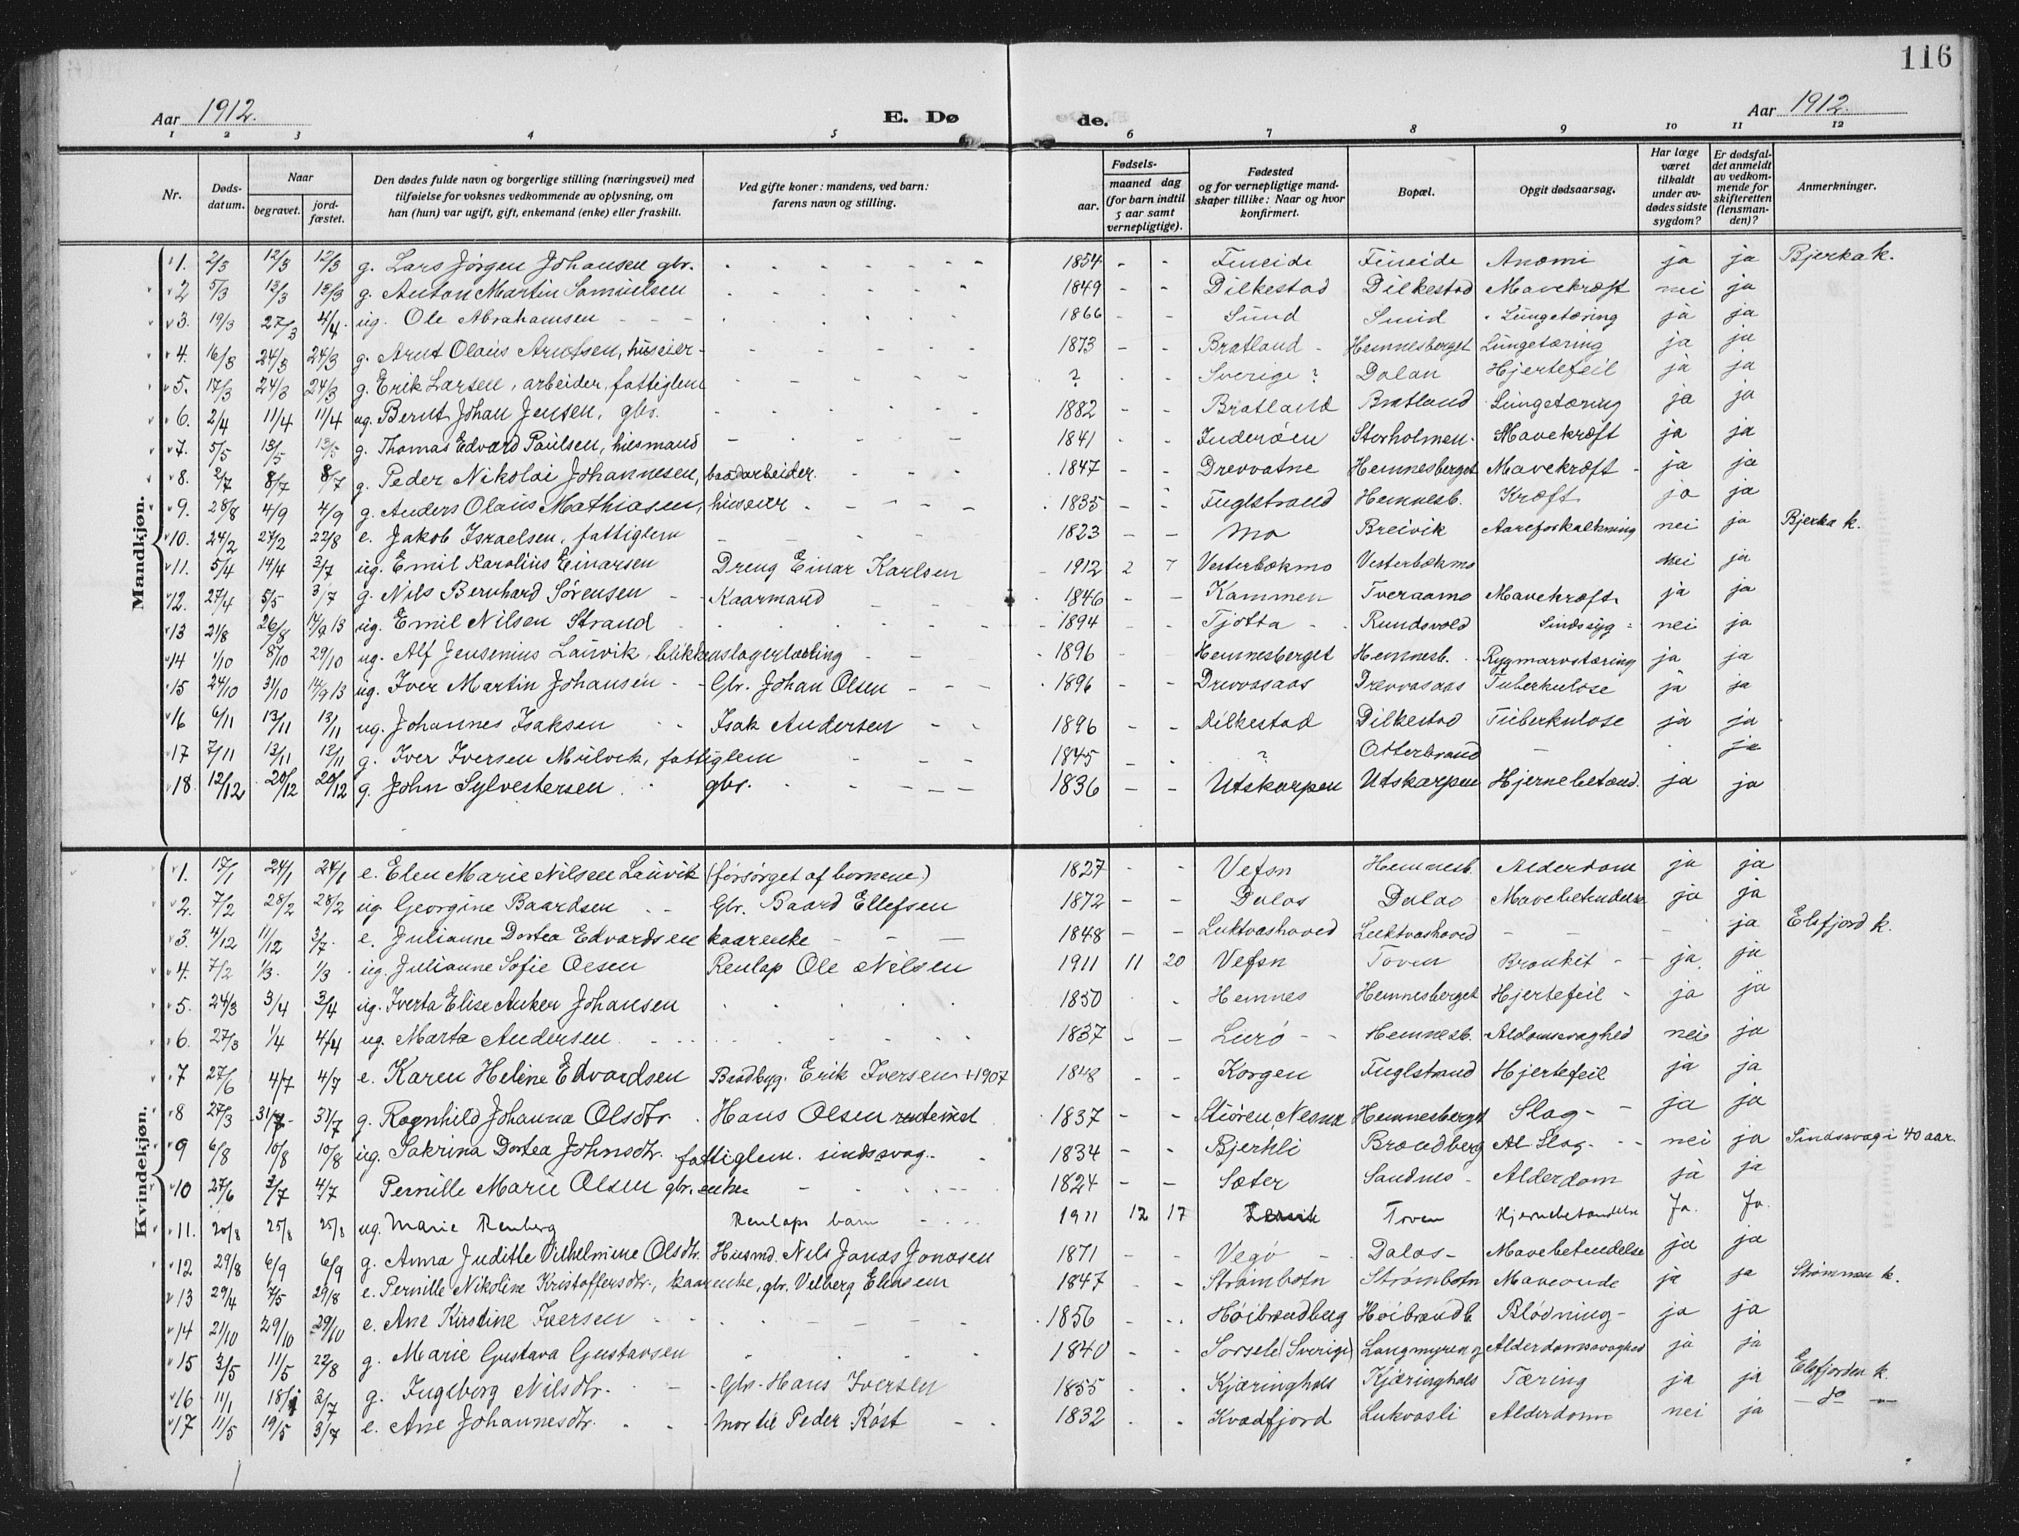 116
Aar 1912. E. Dø de. Aar 1912.
1 2 3 4 5 6 7 8 9 10 11 12
Nr. Døds-datum. Naar begravet. jord-fæstet. Den dødes fulde navn og borgerlige stilling (næringsvei) med tilføielse for voksnes vedkommende av oplysning, om han (hun) var ugift, gift, enkemand (enke) eller fraskilt. Ved gifte koner: mandens, ved barn: farens navn og stilling. Fødsels- aar. maaned dag (for barn indtil 5 aar samt vernepligtige). Fødested og for vernepligtige mandskaper tillike: Naar og hvor konfirmert. Bopæl. Opgit dødsaarsag. Har læge været tilkaldt under avdødes sidste sygdom? Er dødsfaldet anmeldt av vedkommende for skifteretten (lensmanden)? Anmerkninger.
Mandkjøn.
1. 2/3 12/3 12/3 g. Lars Jørgen Johansen gbr. 1854 - - Fineide Fineide Anæmi ja ja Bjerka k.
2 5/3 13/3 13/3 g. Anton Martin Samuelsen 1849 - - Dilkestad Dilkestad Mavekræft nei ja
3. 19/3 27/3 4/4 ug. Ole Abrahamsen 1866 - - Sund Sund Lungetæring ja ja
4. 16/3 24/3 24/3 g. Arnt Olaus Arntsen, huseier 1873 - - Bratland Hemnesberget Lungetæring ja ja
5. 17/3 24/3 24/3 g. Erik Larsen, arbeider, fattiglem ? - - Sverige? Dalan Hjertefeil ja ja
6. 2/4 11/4 11/4 ug. Bernt Johan Jensen, gbr. 1882 - - Bratland Bratland Lungetæring ja ja
7. 5/5 13/5 13/5 g. Thomas Edvard Paulsen, husmand 1841 - - Inderøen Storholmen Mavekræft ja ja
8. 2/7 8/7 8/7 g. Peder Nikolai Johannesen, baadarbeider 1847 - - Drevvatne Hemnesberget Mavekræft ja ja
9. 28/8 4/9 4/9 g. Anders Olaus Mathiasen, huseier 1835 - - Fuglstrand Hemnesb. Kræft ja ja
10. 24/2 27/2 22/8 e. Jakob Israelsen, fattiglem 1823 - - Mo Breivik Aareforkalkning nei ja Bjerka k.
11. 5/4 14/4 3/7 ug. Emil Karolius Einarsen Dreng Einar Karlsen 1912 2 7 Vesterbækmo Vesterbækmo nei ja
12. 27/4 5/5 3/7 g. Nils Bernhard Sørensen Kaarmand 1846 - - Kammen Tveraamo Mavekræft ja ja
13 21/8 26/8 14/9 13 ug. Emil Nilsen Strand 1894 - - Tjøtta Rundsvold Sindssyg nei ja
14 1/10 8/10 29/10 ug. Alf Jensenius Lauvik, blikkenslagerlærling 1896 - - Hemnesberget Hemnesb. Rygmarvstæring ja ja
15 24/10 31/10 14/9 13 ug. Iver Martin Johansen Gbr. Johan Olsen 1896 - - Drevvasaas Drevvasaas Tuberkulose ja ja
16 6/11 13/11 13/11 ug. Johannes Isaksen Isak Andersen 1896 - - Dilkestad Dilkestad Tuberkulose ja ja
17 7/11 13/11 12/11 g. Iver Iversen Mulvik, fattiglem 1845 - - ? Otterbrand - ja
18. 12/12 20/12 20/12 g. John Sylvestersen gbr. 1836 - - Utskarpen Utskarpen Hjernebetænd. ja ja
Kvindekjøn.
1. 17/1 24/1 24/1 e. Elen Marie Nilsen Lauvik (forsørget af børnene) 1827 - - Vefsn Hemnesb. Alderdom ja ja
2. 7/2 28/2 28/2 ug Georgine Baardsen Gbr. Baard Ellefsen 1872 - - Dalos Dalos Mavebetændelse ja ja
3. 4/12 11/12 3/7 e. Julianne Dortea Edvardsen kaarenke 1848 - - Luktvashoved Luktvashoved - - ja Elsfjord k.
4. 7/2 1/3 1/3 ug. Julianne Sofie Olsen Renlap Ole Nilsen 1911 11 20 Vefsn Toven Bronkit ja ja
5. 24/3 3/4 3/4 ug. Iverta Elise Anker Johansen 1850 Hemnes Hemnesberget Hjertefeil ja ja
6. 27/3 1/4 4/4 ug. Marta Andersen 1837 - - Lurø Hemnesb. Aldomssvaghed nei ja
7 27/6 4/7 4/7 e. Karen Heline Edvardsen Baadbyg. Erik Iversen +1907 1848 - - Korgen Fuglstrand Hjertefeil ja ja
8 27/3 31/7 31/7 g. Ragnhild Johanna Olsdtr. Hans Olsen 1837 - - Hemnesberget Slag ja ja
9 6/8 10/8 10/8 ug. Sakrina Dortea Johnsdtr. fattiglem. sindssvag. 1834 - - Bjerkli Brændberg Al Slag nei ja Sindssvag i 40 aar.
10 27/6 3/7 4/7 Pernille Marie Olsen gbr. enke 1824 - - Sæter Sandnes Alderdom ja ja
11. 20/8 25/8 25/8 ug. Marie Renberg Renlaps barn 1911 12 17 Toven Hjernebetændelse Ja. Ja.
12 29/8 6/9 6/9 g. Anna Juditte Vilhelmine Olsdtr. Husmd. Nils Jonas Jonasen 1871 - - Vegø Dalos Mavebetændelse ja ja
13 29/4 7/5 29/8 e. Pernille Nikoline Kristoffersdtr., kaarenke, gbr. Velberg Elensen 1847 - - Strømbotn Strømbotn Maveonde ja ja Strømmen k.
14 21/10 29/10 29/10 e. Ane Kirstine Iversen 1856 - - Høibrændberg Høibrændb Blødning ja ja
15 3/5 11/5 22/8 g. Marie Gustava Gustavsen 1840 - - Sorsele (Sverige) Langmyren Alderdomssvaghed ja ja
16 11/1 18/1 3/7 g. Ingeborg Nilsdtr. Gbr. Hans Iversen 1855 - - Kjæringhals Kjæringhals Tæring ja ja Elsfjorden k.
17 11/5 19/5 3/7 e. Ane Johannesdtr. Mor til Peder Røst 1832 - - Kvædfjord Lukvasli Alderdom nei ja - do -